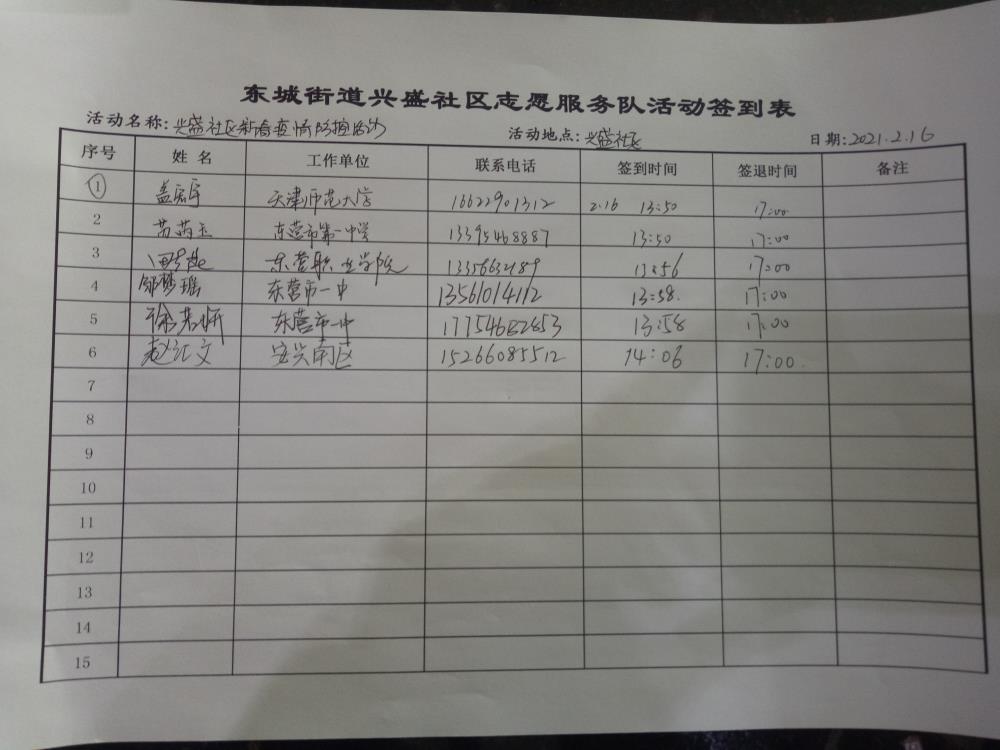 东城街道兴盛社区志愿服务队活动签到表
活动名称:兴盛社区新春疫情防控活动 活动地点:兴盛社区 日期:2021.2.16
序号 姓名 工作单位 联系电话 签到时间 签退时间 备注
1 天津师范大学 16622901312 2.16 13:50 17:00
2 东营市第一中学 13395468887 13:50 17:00
3 东营职业学院 13:56 17:00
4 邹梦瑶 东营市一中 13561014112 13:58. 17:00
5 徐若妍 东营市一中 17754682853 13:58 17:00
6 赵汇文 安兴南区 15266085512 14:06 17:00.
7
8
9
10
11
12
13
14
15